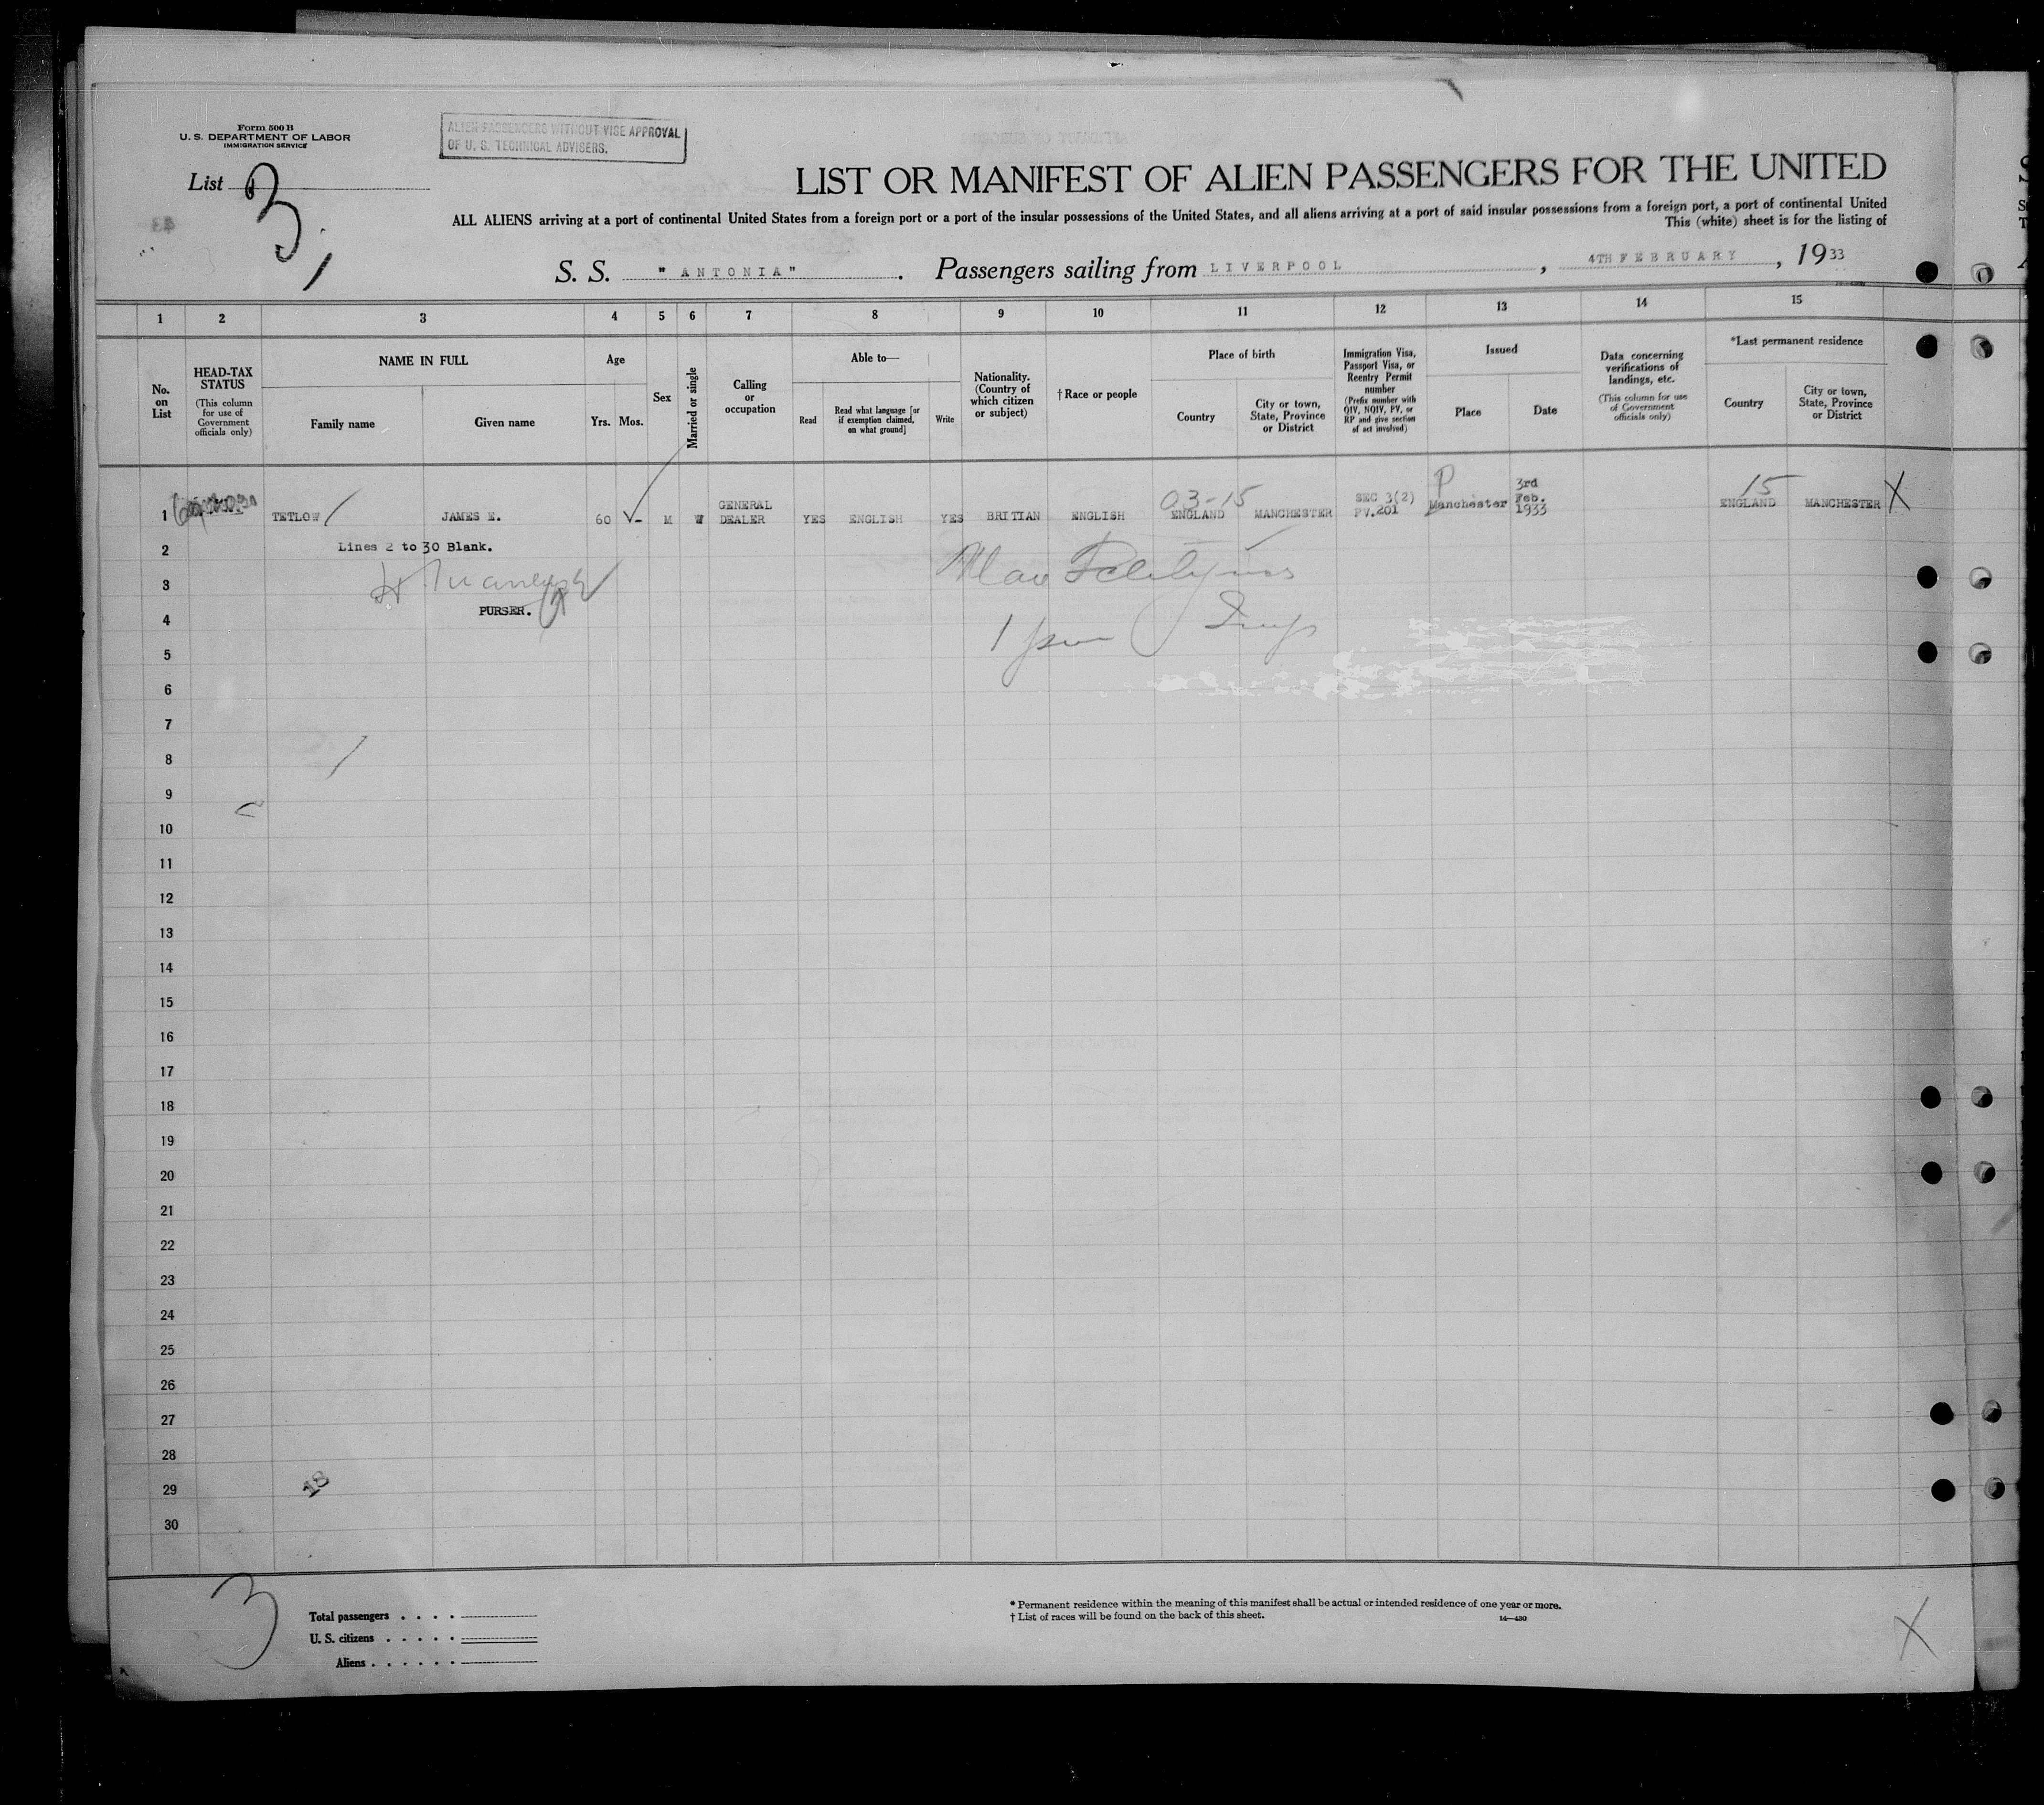 Form 500 B
U. S. DEPARTMENT OF LABOR
IMMIGRATION SERVICE
ALIEN PASSENGERS WITHOUT VISE APPROVAL
OF U. S. TECHNICAL ADVISERS.
List 3
LIST OR MANIFEST OF ALIEN PASSENGERS FOR THE UNITED
ALL ALIENS arriving at a port of continental United States from a foreign port or a port of the insular possessions of the United States, and all aliens arriving at a port of said insular possessions from a foreign port, a port of continental United
This (white) sheet is for the listing of
S. S. "ANTONIA". Passengers sailing from LIVERPOOL, 4TH FEBRUARY, 1933
1 2 3 4 5 6 7 8 9 10 11 12 13 14 15
No. on List
HEAD-TAX STATUS
(This column for use of Government officials only)
NAME IN FULL
Family name
Given name
Age
Yrs.
Mos.
Sex
Married or single
Calling or occupation
Able to—
Read
Read what language [or if exemption claimed, on what ground]
Write
Nationality. (Country of which citizen or subject)
† Race or people
Place of birth
Country
City or town, State, Province or District
Immigration Visa, Passport Visa, or Reentry Permit number
(Prefix number with QIV, NQIV, PV, or RP and give section of act involved)
Issued
Place
Date
Data concerning verifications of landings, etc.
(This column for use of Government officials only)
*Last permanent residence
Country
City or town, State, Province or District
03-15
P
15
1 TETLOW JAMES E. 60 - M W GENERAL DEALER YES ENGLISH YES BRITIAN ENGLISH ENGLAND MANCHESTER SEC 3(2) PV.201 Manchester 3rd Feb. 1933 ENGLAND MANCHESTER X
2 Lines 2 to 30 Blank.
3
PURSER.
4
5
6
7
8
9
10
11
12
13
14
15
16
17
18
19
20
21
22
23
24
25
26
27
28
29 18
30
3
Total passengers . . . .
U. S. citizens . . . . .
Aliens . . . . . .
* Permanent residence within the meaning of this manifest shall be actual or intended residence of one year or more.
† List of races will be found on the back of this sheet.
14—430
X